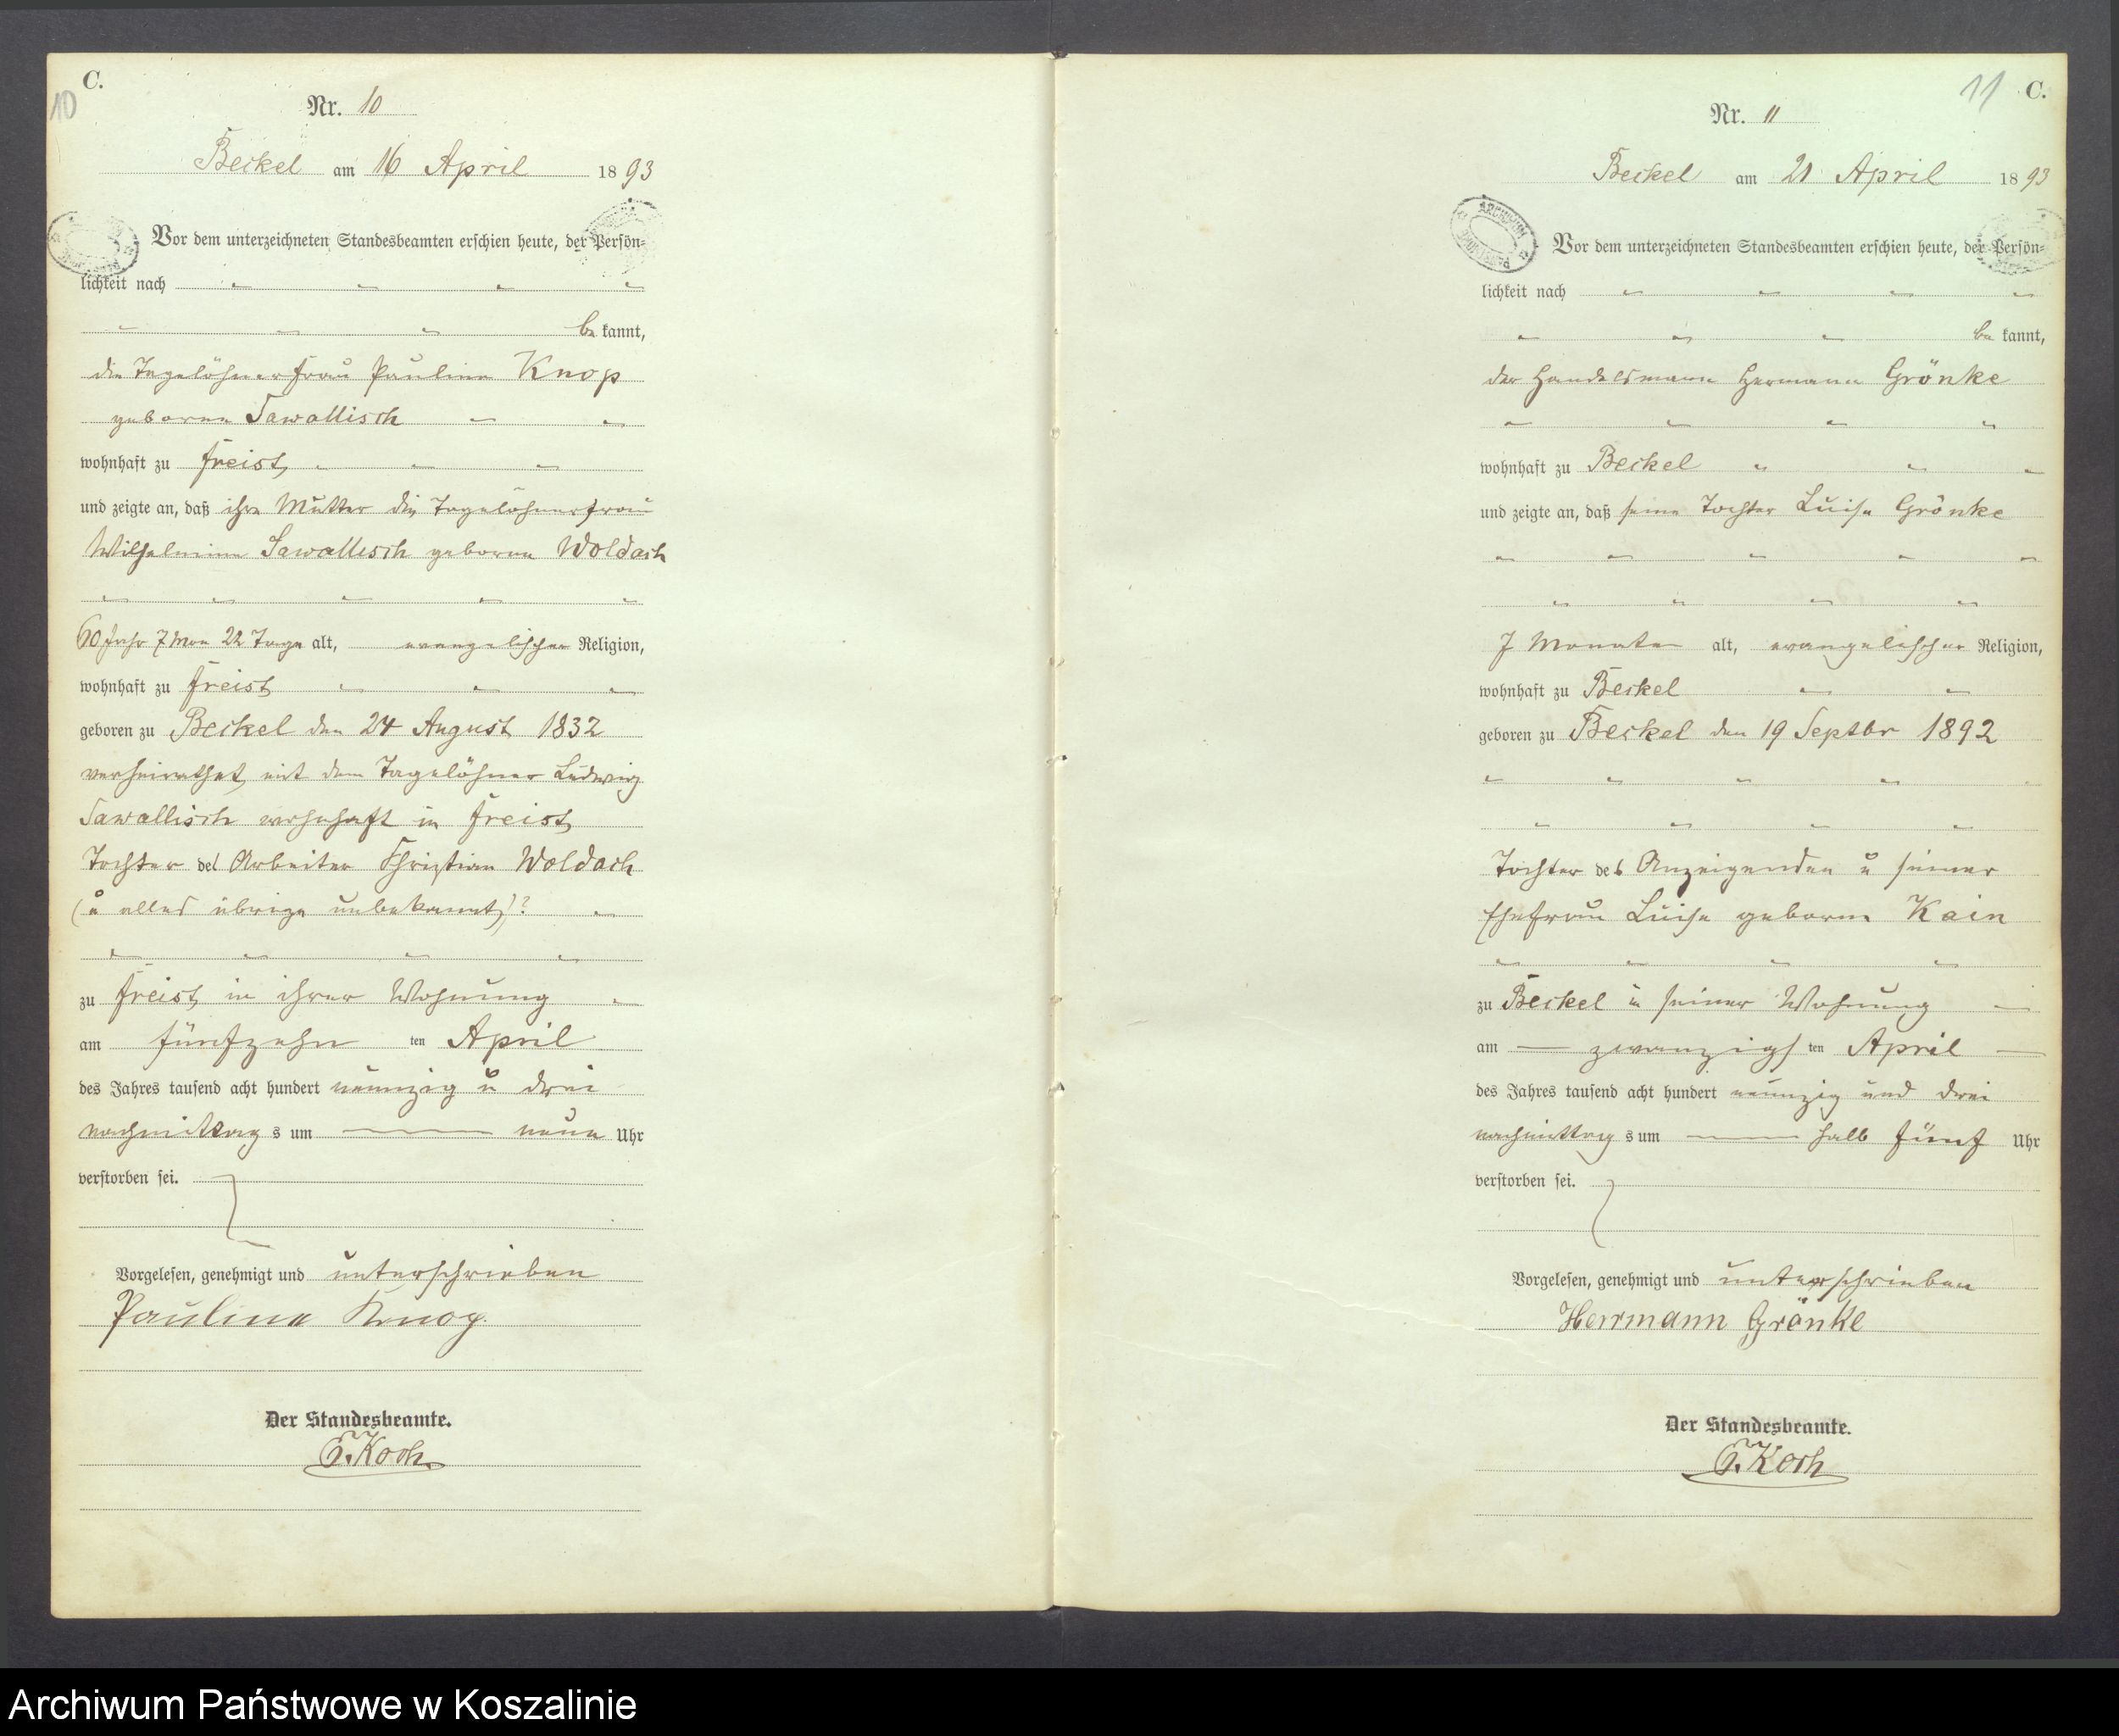 C.
10
Nr. 10
Beckel am 16 April 1893
Vor dem unterzeichneten Standesbeamten erschien heute, der Persön-
lichkeit nach
be kannt,
die Tagelöhnerfrau Pauline Knop
geborne Sawallisch
wohnhaft zu Freist
und zeigte an, daß ihre Mutter die Tagelöhnerfrau
Wilhelmine Sawallisch geborne Woldach
60 Jahr 7 Mon 22 Tage alt, evangelischer Religion,
wohnhaft zu Freist
geboren zu Beckel den 24 August 1832
verheirathet mit dem Tagelöhner Ludwig
Sawallisch wohnhaft in Freist
Tochter des Arbeiter Christian Woldach
(u alles übrige unbekannt)?
zu Freist in ihrer Wohnung
am fünfzehn ten April
des Jahres tausend acht hundert neunzig u drei
nachmittag s um neun Uhr
verstorben sei.
Vorgelesen, genehmigt und unterschrieben
Pauline Knop
Der Standesbeamte.
G. Koch
11 C.
Nr. 11
Beckel am 21 April 1893
ARCHIWUM
Vor dem unterzeichneten Standesbeamten erschien heute, der Persön-
lichkeit nach
be kannt,
der Handelsmann Hermann Grönke
wohnhaft zu Beckel
und zeigte an, daß seine Tochter Luise Grönke
7 Monate alt, evangelischer Religion,
wohnhaft zu Beckel
geboren zu Beckel den 19 Septbr 1892
Tochter des Anzeigenden u seiner
Ehefrau Luise geborne Kain
zu Beckel in seiner Wohnung
am zwanzigs ten April
des Jahres tausend acht hundert neunzig und drei
nachmittag s um halb fünf Uhr
verstorben sei.
Vorgelesen, genehmigt und unterschrieben
Herrmann Grönke
Der Standesbeamte.
G. Koch
Archiwum Państwowe w Koszalinie